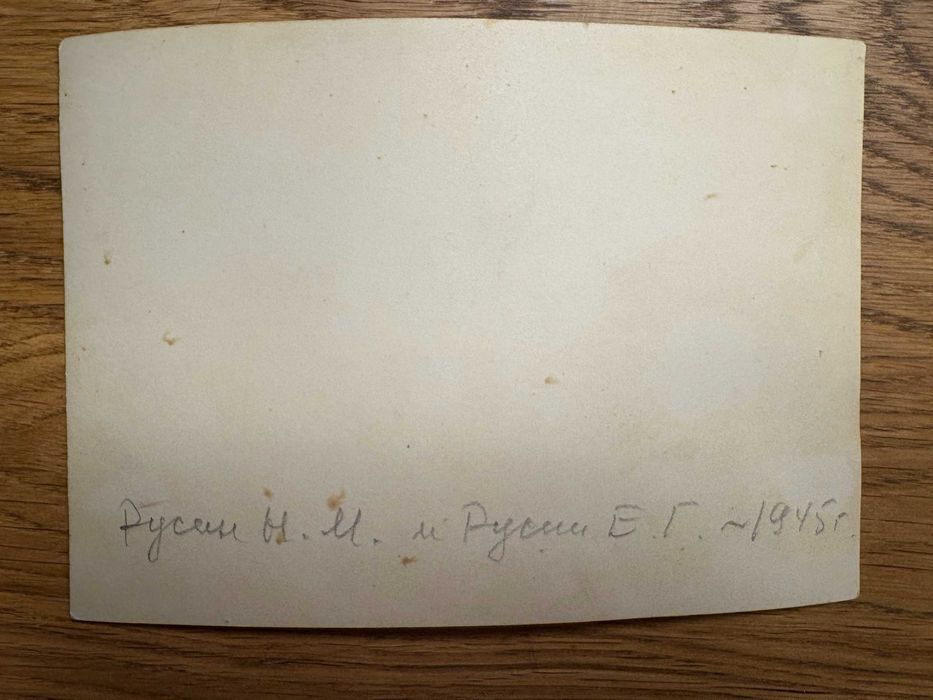 Русин Н. М. и Русин Е. Г. ~1945г.